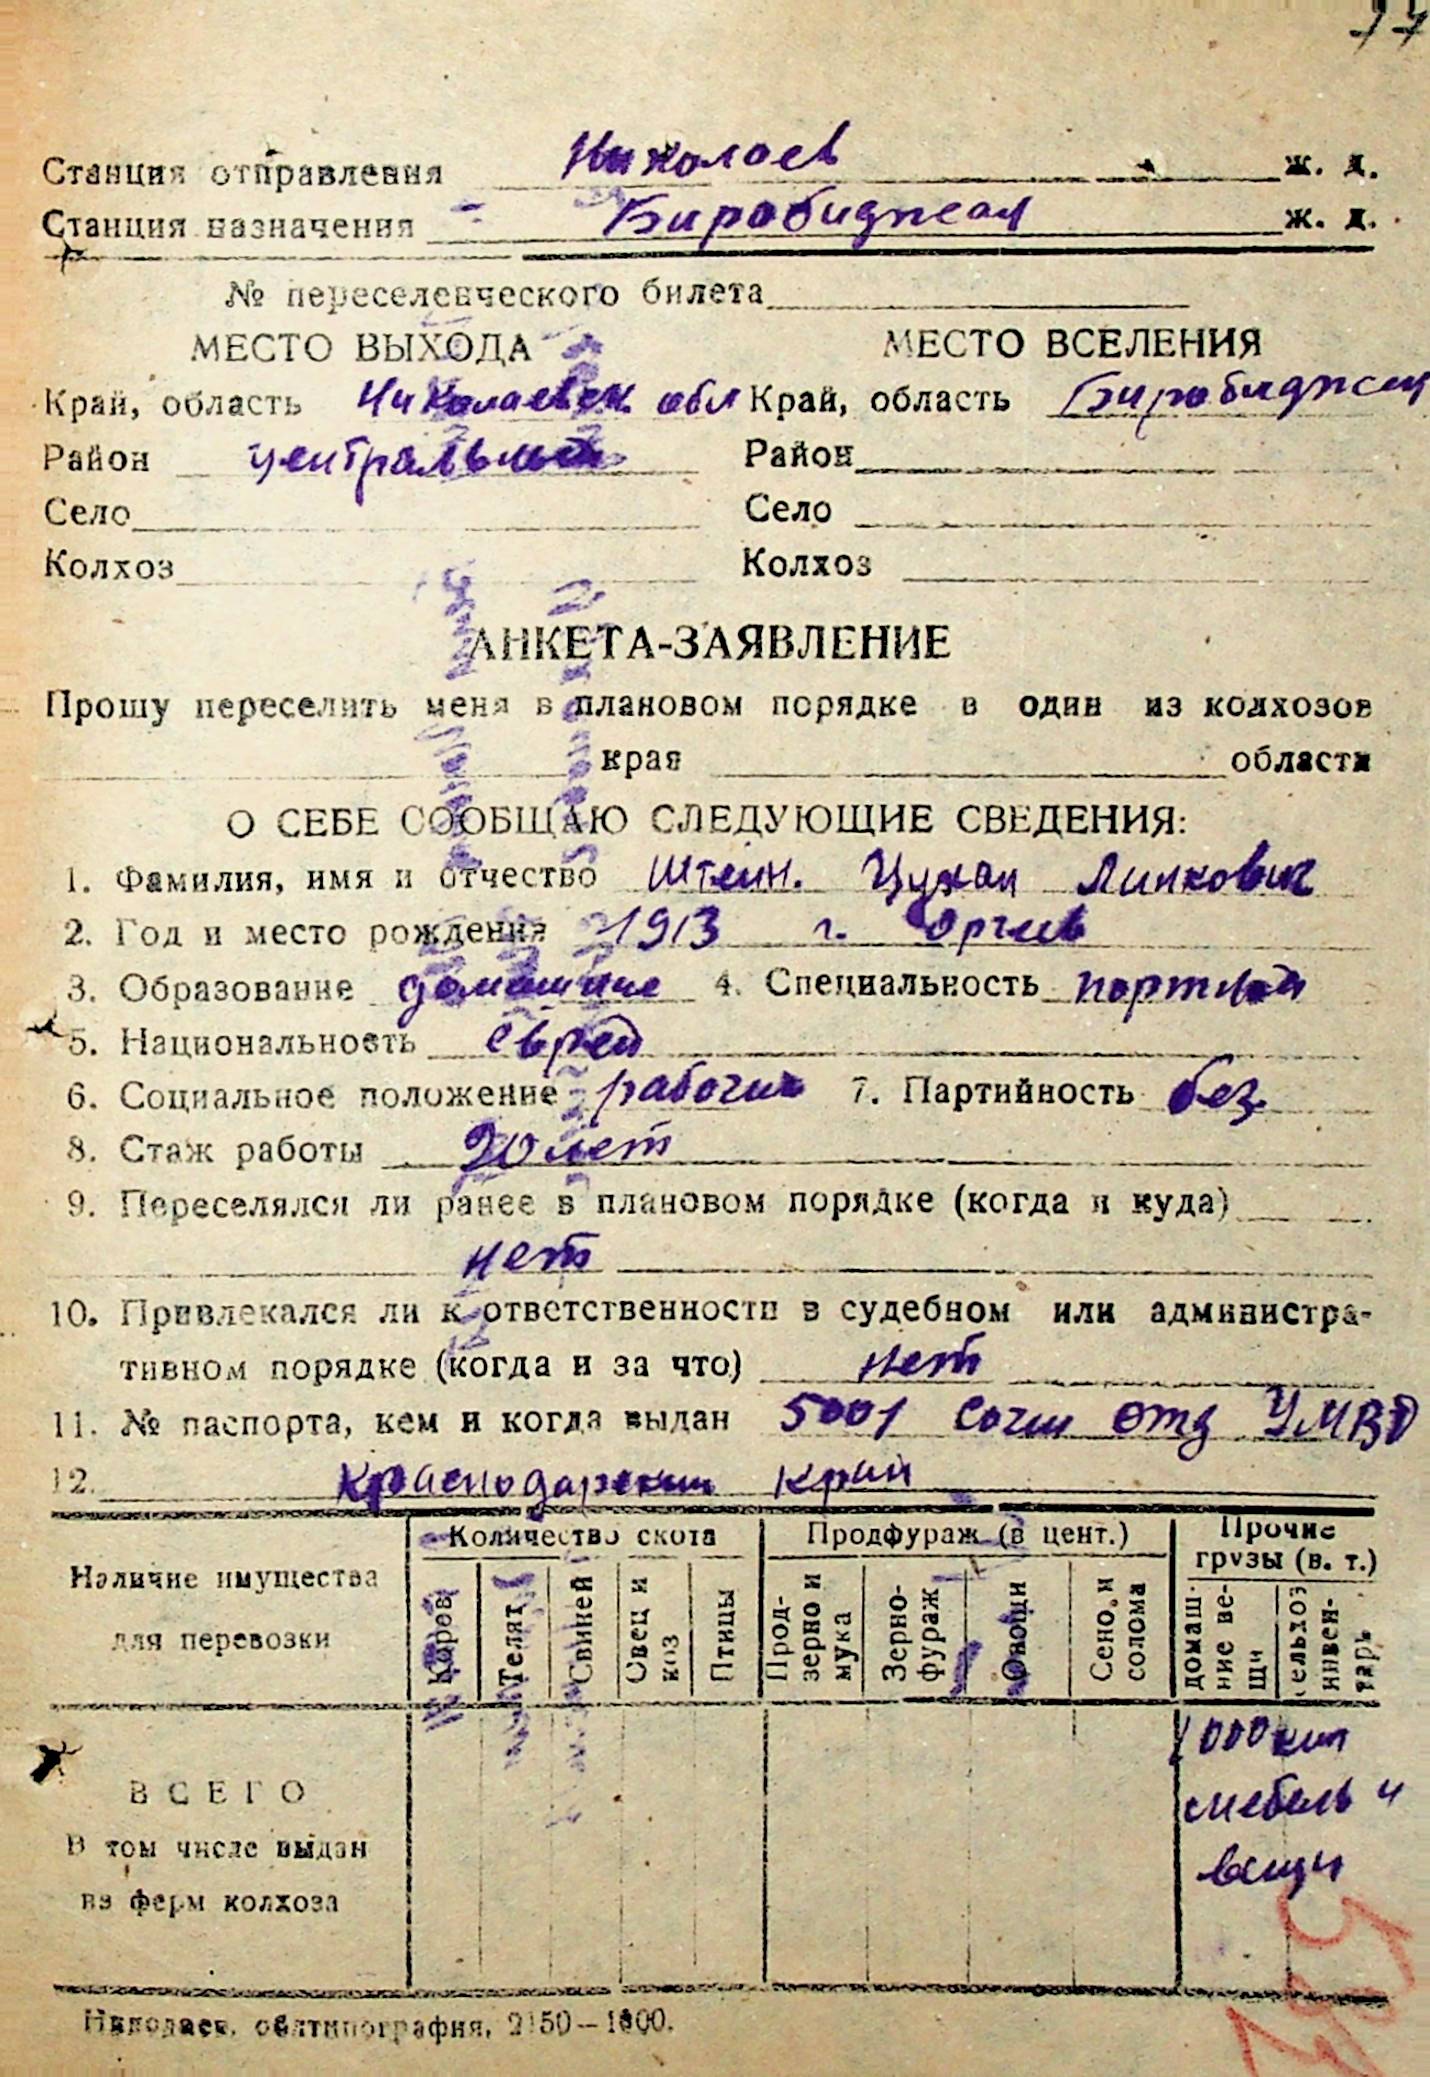 77
Станция отправления Николаев ж. д.
Станция назначения Биробиджан ж. д.
№ переселенческого билета
МЕСТО ВЫХОДА МЕСТО ВСЕЛЕНИЯ
Край, область Николаевск обл Край, область Биробиджан
Район центральный Район
Село Село
Колхоз Колхоз
АНКЕТА-ЗАЯВЛЕНИЕ
Прошу переселить меня в плановом порядке в один из колхозов
края области
О СЕБЕ СООБЩАЮ СЛЕДУЮЩИЕ СВЕДЕНИЯ:
1. Фамилия, имя и отчество Штейн. Цухан Линкович
2. Год и место рождения 1913 г. Оргеев
3. Образование домашнее 4. Специальность портной
5. Национальность еврей
6. Социальное положение рабочий 7. Партийность без
8. Стаж работы 20 лет
9. Переселялся ли ранее в плановом порядке (когда и куда)
нет
10. Привлекался ли к ответственности в судебном или администра-
тивном порядке (когда и за что) нет
11. № паспорта, кем и когда выдан 5001 Сочи отд УМВД
12. Краснодарский край
Наличие имущества для перевозки
Количество скота Продфураж (в цент.) Прочие грузы (в. т.)
Коров Телят Свиней Овец и коз Птицы Прод-зерно и мука Зерно-фураж Овощи Сено и солома домаш-ние ве-щи сельхоз инвен-тарь
ВСЕГО 1000 кил
мебель и
вещи
В том числе выдан
из ферм колхоза
Николаев, облтипография, 2150–1000.